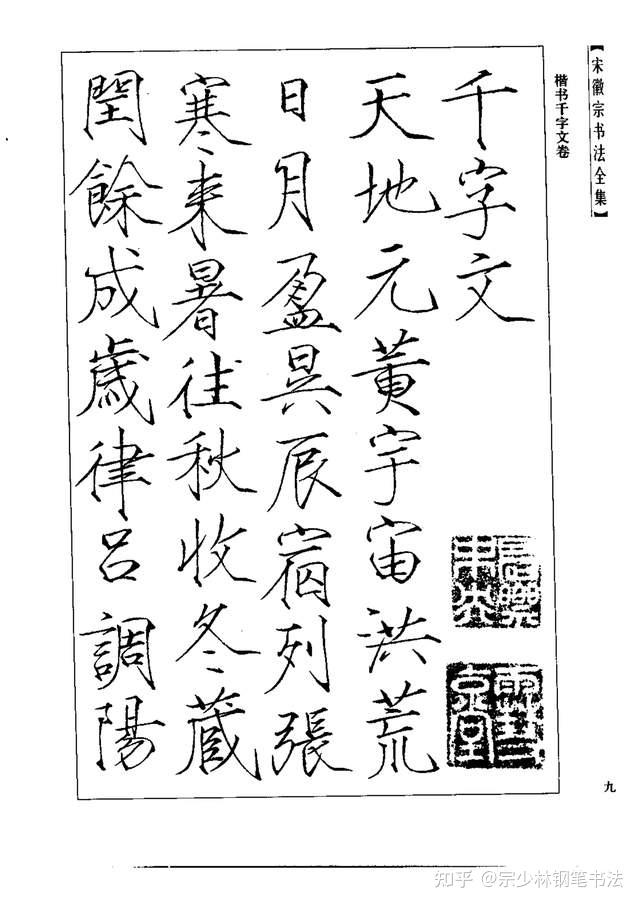 【宋徽宗书法全集】
楷书千字文卷
千字文
天地元黄宇宙洪荒
日月盈昃辰宿列張
寒来暑往秋收冬藏
閏餘成歲律吕調陽
九
知乎 @宗少林钢笔书法